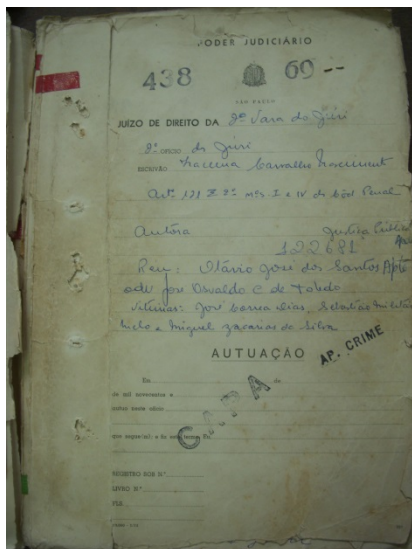 PODER JUDICIÁRIO
438 69 --
SÃO PAULO
JUÍZO DE DIREITO DA 2ª Vara do Júri
2º OFÍCIO do Júri
ESCRIVÃO Iracema Carvalho
Artº 121 § 2º nºs I e IV do Cód Penal
Autora Justiça Pública
122681 Apda
Réu: Otávio José dos Santos Apte
adv José Osvaldo C de Toledo
Vítimas: José Correa Dias, Sebastião
e Miguel Zacarias da Silva
AUTUAÇÃO
AP. CRIME
Em de
CAPA
de mil novecentos e
autuo neste ofício
que segue(m); e fiz este termo. Eu,
REGISTRO SOB N.º
LIVRO N.º
FLS.